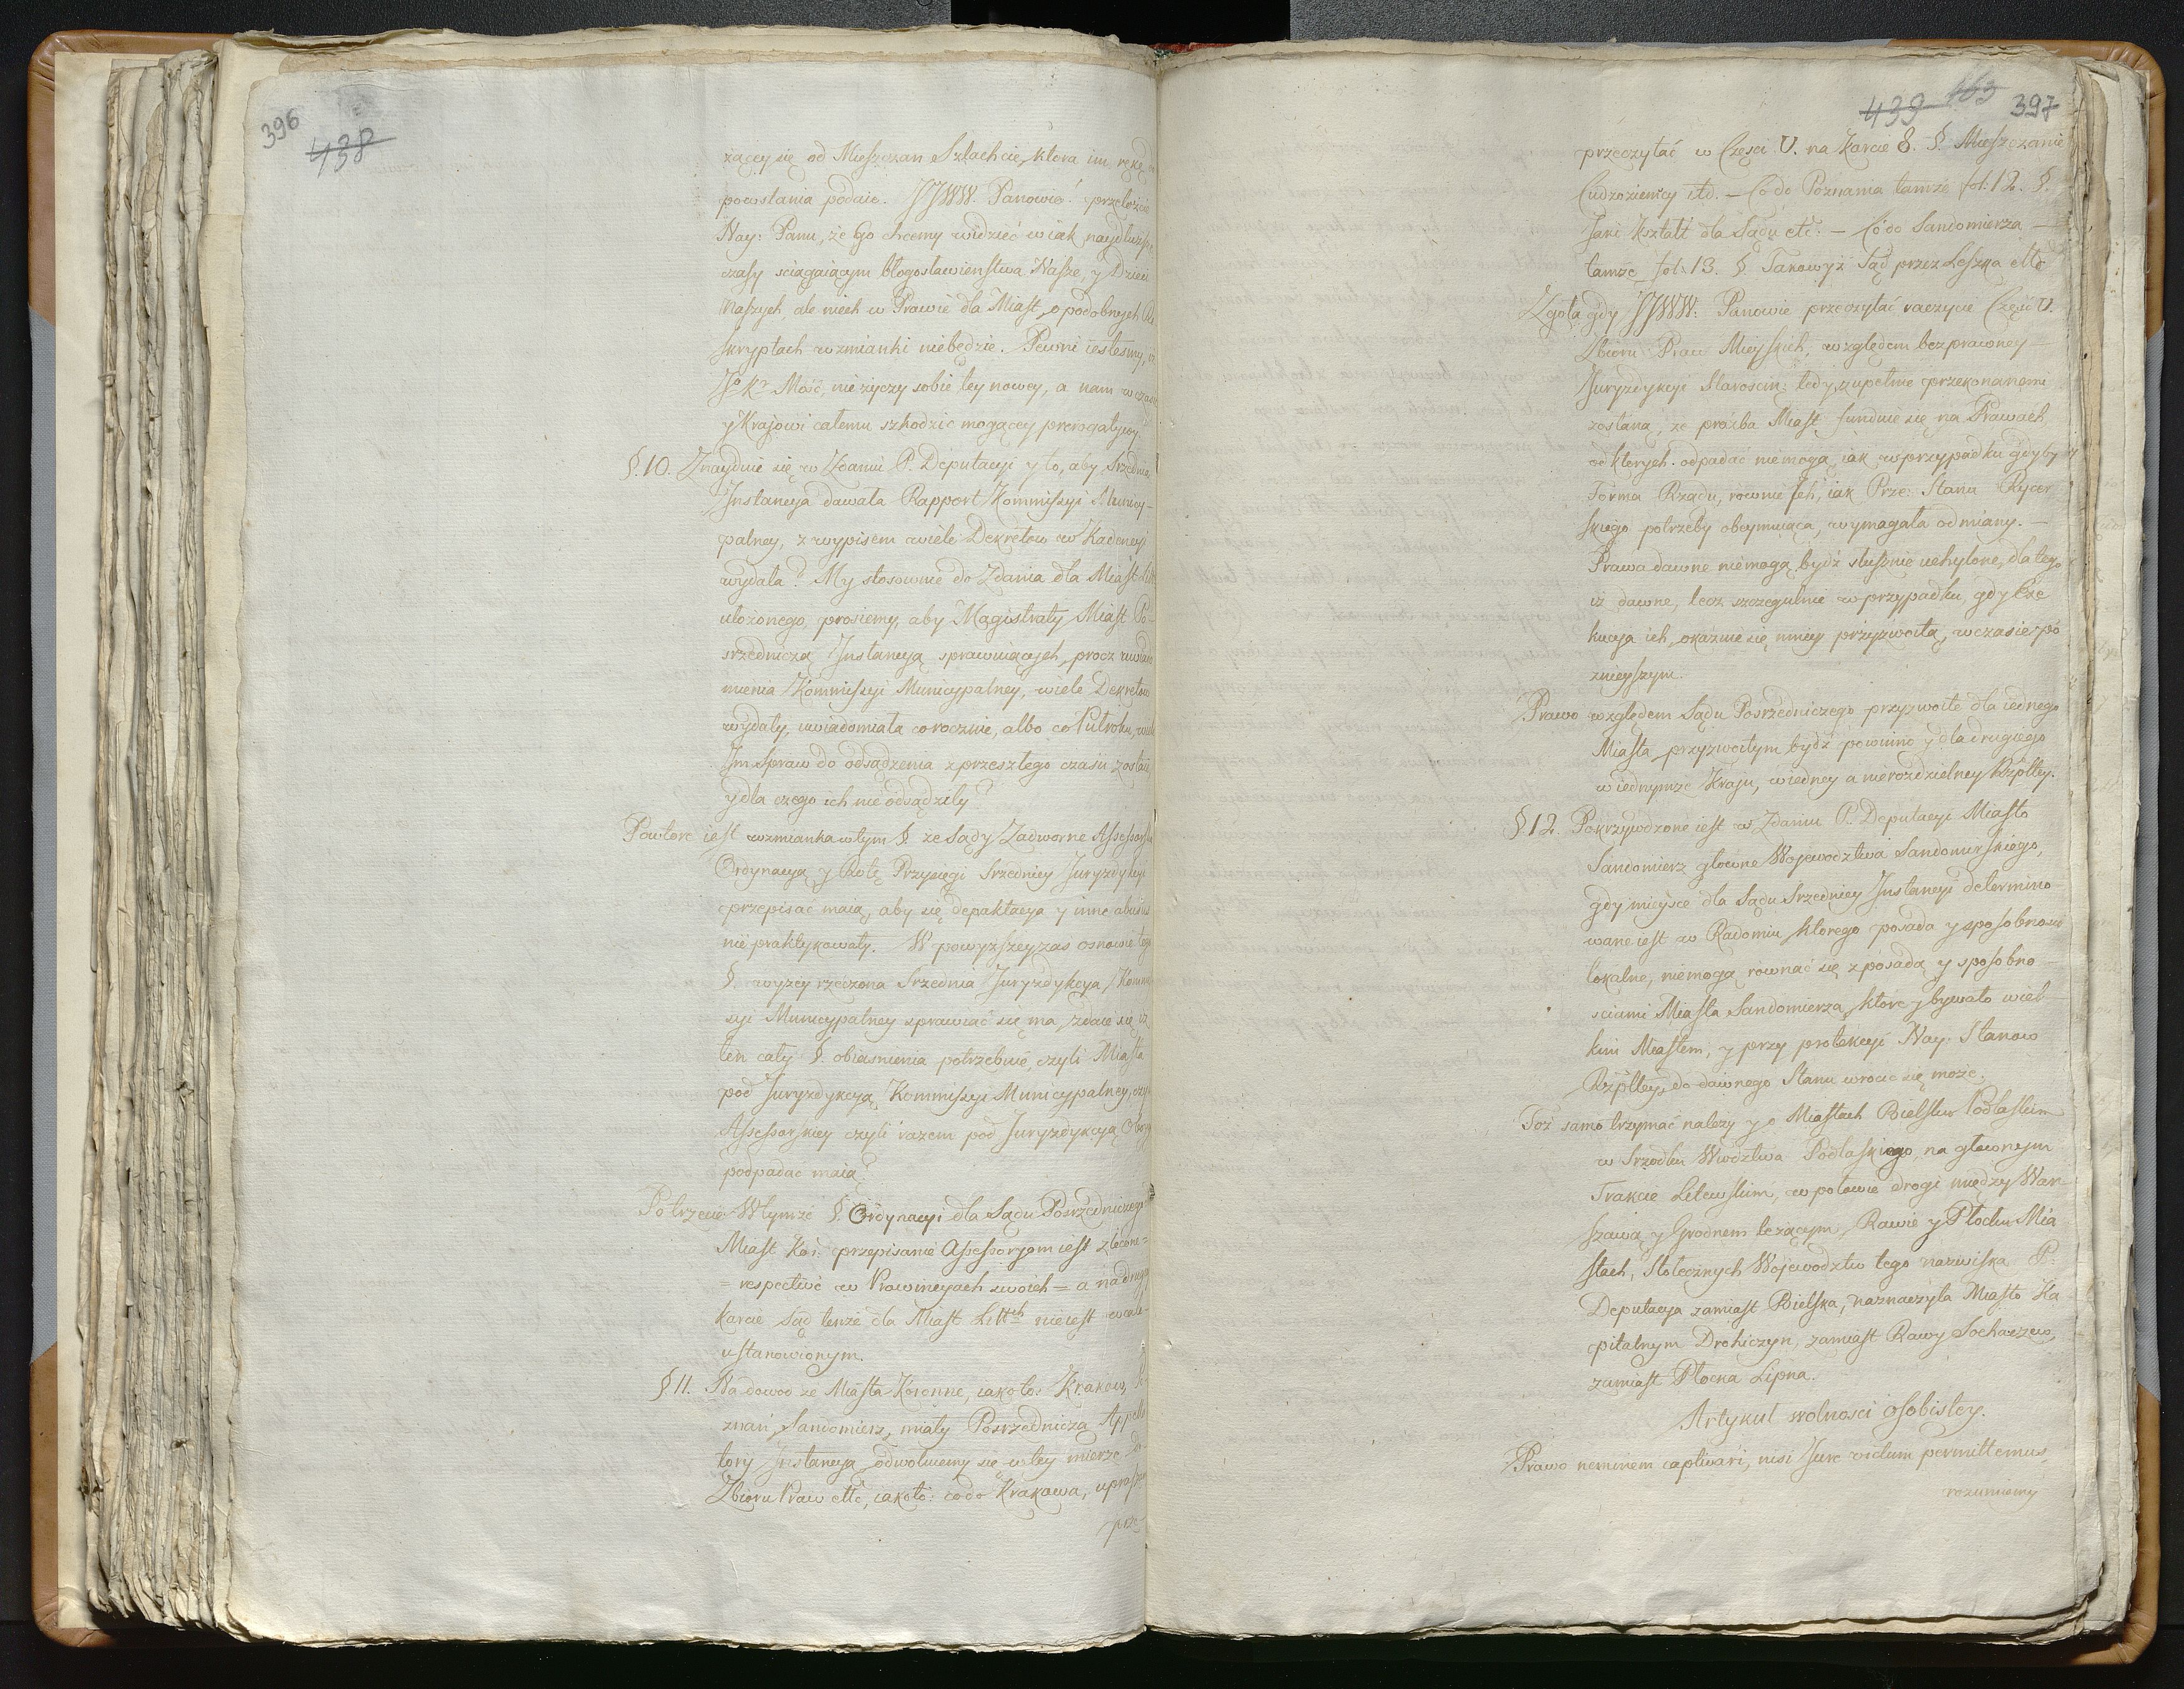 396
438
żący się od Mieszczan Szlachcie, ktora im rękę
powstania podaie. JJWW. Panowie! przełożcie
Nay: Panu, że Go chcemy widzieć w iak naydłuższe
czasy sciągaiącym błogosławienstwa Nasze, y Dzieci
Naszych, ale niech w Prawie dla Miast, o podobnych Re
skryptach wzmianki niebędzie. Pewni iestesmy, iż
Jº Kr Mość, nie życzy sobie tey nowey, a nam w czasie
y Krajowi całemu szkodzić mogącey prerogatywy.
§. 10. Znayduie się w Zdaniu P. Deputacyi y to, aby Srzednia
Instancya dawała Rapport Kommissyi Municy-
palney, z wypisem wiele Dekretow w Kadencyi
wydała? My stosownie do Zdania dla Miast Litt
ułożonego, prosiemy, aby Magistraty Miast Po-
srzedniczą Instancyą sprawuiących, procz uwiado
mienia Kommissyi Municypalney, wiele Dekretow
wydały, uwiadomiała corocznie, albo co Pułroku, wiele
Im Spraw do odsądzenia z przeszłego czasu zostaie
y dla czego ich nie odsądziły?
Powtore iest wzmianka w tym §. że Sądy Zadworne Assessorskie
Ordynacyą y Rotę Przysięgi Srzedniey Juryzdykcyi
przepisać maią, aby się depaktacya y inne abusus
nie praktykowały. W powyższey zas osnowie tego
§. wyżey rzeczona Srzednia Juryzdykcya, Kommis
syi Municypalney sprawiać się ma, zdaie się, iż
ten cały §. obiasnienia potrzebuie, czyli Miasta
pod Juryzdykcyą Kommissyi Municypalney, czyli
Assessorskiey czyli razem pod Juryzdykcyą Oboyga
podpadać maią?
Potrzecie: W tymże §. Ordynacyi dla Sądu Posrzedniczego
Miast Kor: przepisanie Assessoryom iest zlecone =
= respective w Prowincyach swoich = a na drugiey
karcie Sąd tenże dla Miast Littch nie iest wcale
ustanowionym.
§ 11. Na dowod że Miasta Koronne, iakoto: Krakow, Po
znań, Sandomierz, miały Posrzedniczą Appella
tory Instancya, odwołuiemy się w tey mierze do
Zbioru Praw ettc, iakoto: co do Krakowa, upraszam
prze-
439 463 397
przeczytać w Częsci V. na Karcie 8. §. Mieszczanie
Cudzoziemcy ettd. – Co do Poznania tamże fol: 12. §.
Jaki kształt dla Sądu etc: – Co do Sandomierza –
tamże fol: 13. §. Tanowyż Sąd przez Leszka ettc
Zgoła gdy JJWW: Panowie przeczytać raczycie Część V.
Zbioru Praw Mieyskich, względem bezprawney –
Juryzdykcyi Staroscin: tedy, zupełnie przekonanemi
zostaną, że prozba Miast funduie się na Prawach,
od ktorych odpadać niemogą, iak w przypadku gdyby
Forma Rządu, rownie Ich, iak Prze: Stanu Rycer
skiego potrzeby obeymuiąca, wymagała odmiany. –
Prawa dawne niemogą bydź słusznie uchylone, dla tego
iż dawne, lecz szczegulnie w przypadku, gdy Exe
kucya ich, okazuie się mniey przyzwoitą, w czasie pó
znieyszym.
Prawo względem Sądu Posrzedniczego przyzwoite dla iednego
Miasta, przyzwoitym bydź powinno y dla drugiego
w iednymże Kraju, w iedney a nierozdzielney Rzpltey.
§ 12. Pokrzywdzone iest w Zdaniu P. Deputacyi Miasto
Sandomierz głowne Wojewodztwa Sandomirskiego,
gdy mieysce dla Sądu Srzedniey Instancyi determino
wane iest w Radomiu, ktorego posada y sposobnosci
lokalne, niemogą rownać się z posadą y sposobno –
sciami Miasta Sandomierza, ktore y bywało wiel
kim Miastem, y przy protekcyi Nay: Stanow
Rzpltey, do dawnego Stanu wrocić się może.
Toż samo trzymać należy y o Miastach Bielsku Podlaskim
w Srzodku Wwodztwa Podlaskiego, na głownym
Trakcie Litewskim, w połowie drogi między War-
szawą y Grodnem leżącym, Rawie y Płocku Mia
stach, Stołecznych Wojewodztw tego nazwiska P.
Deputacya zamiast Bielska, naznaczyła Miasto Ka
pitalnym Drohiczyn, zamiast Rawy Sochaczew,
zamiast Płocka Lipna.
Artykuł wolnosci osobistey.
Prawo neminem captivari, nisi Jure victum permittemus,
rozumiemy